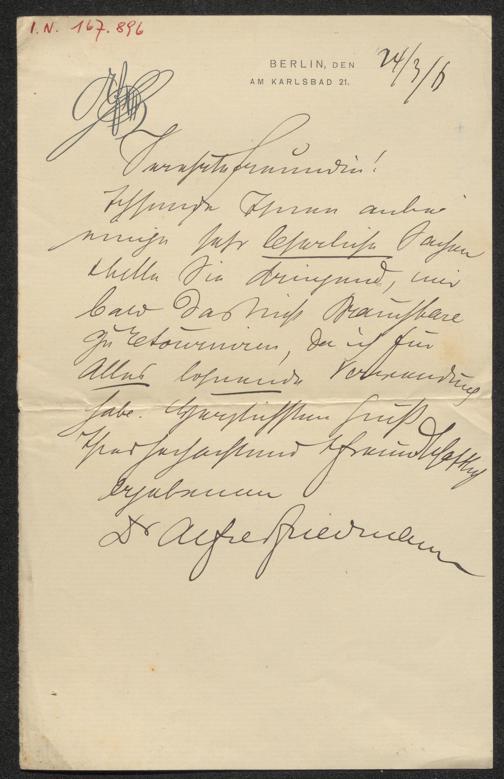 I.N. 167.896
BERLIN, DEN 24/3/
AM KARLSBAD 21.
Verehrte Freundin!
Ich sende Ihnen anbei
einige sehr Sachen
bitte Sie dringend, mir
bald das nicht Brauchbare
zu retourniren, da ich für
Alles lohnende Verwendung
habe. Herzlichsten Gruß
Ihres hochachtend u freundschaftlich
ergebenen
Dr Alfred Friedmann